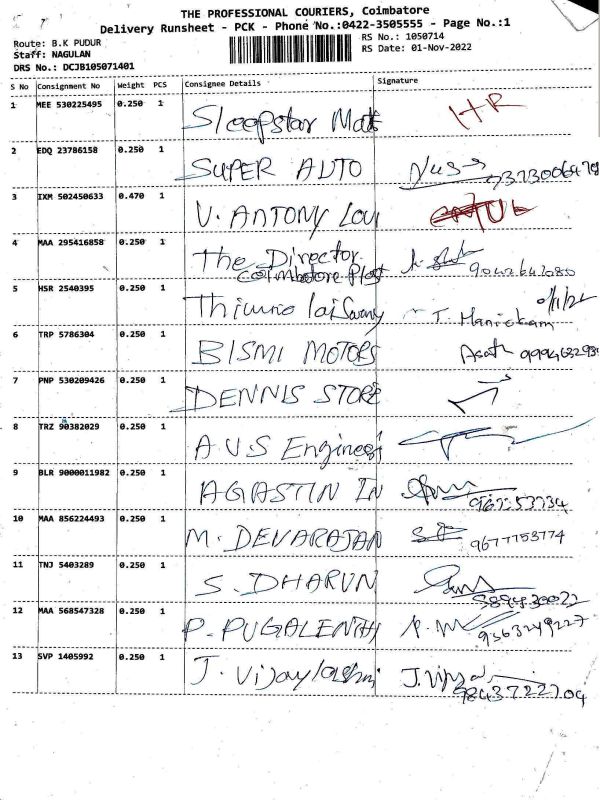 THE PROFESSIONAL COURIERS, Coimbatore
Delivery Runsheet - PCK - Phone No.:0422-3505555 - Page No.:1
Route: B.K PUDUR
RS No.: 1050714
Staff: NAGULAN
RS Date: 01-Nov-2022
DRS No.: DCJB105071401
S No Consignment No Weight PCS Consignee Details Signature
1 MEE 530225495 0.250 1 Sleepstar Mat HR
2 EDQ 23786158 0.250 1 SUPER AUTO
3 IXM 502450633 0.470 1 V. ANTONY Loui
4 MAA 295416858 0.250 1 The Director
Coimbatore Plast
5 HSR 2540395 0.250 1 T. Manickam
6 TRP 5786304 0.250 1 BISMI MOTORS
7 PNP 530209426 0.250 1 DENNIS STORE
8 TRZ 90382029 0.250 1 A.V.S Engineer
9 BLR 9000011982 0.250 1 AGASTIN IN
10 MAA 856224493 0.250 1 M. DEVARAJAN 9677753774
11 TNJ 5403289 0.250 1 S. DHARUN
12 MAA 568547328 0.250 1 P. PUGALENTHI 9363249227
13 SVP 1405992 0.250 1 J. Vijaylashmi 9843722704